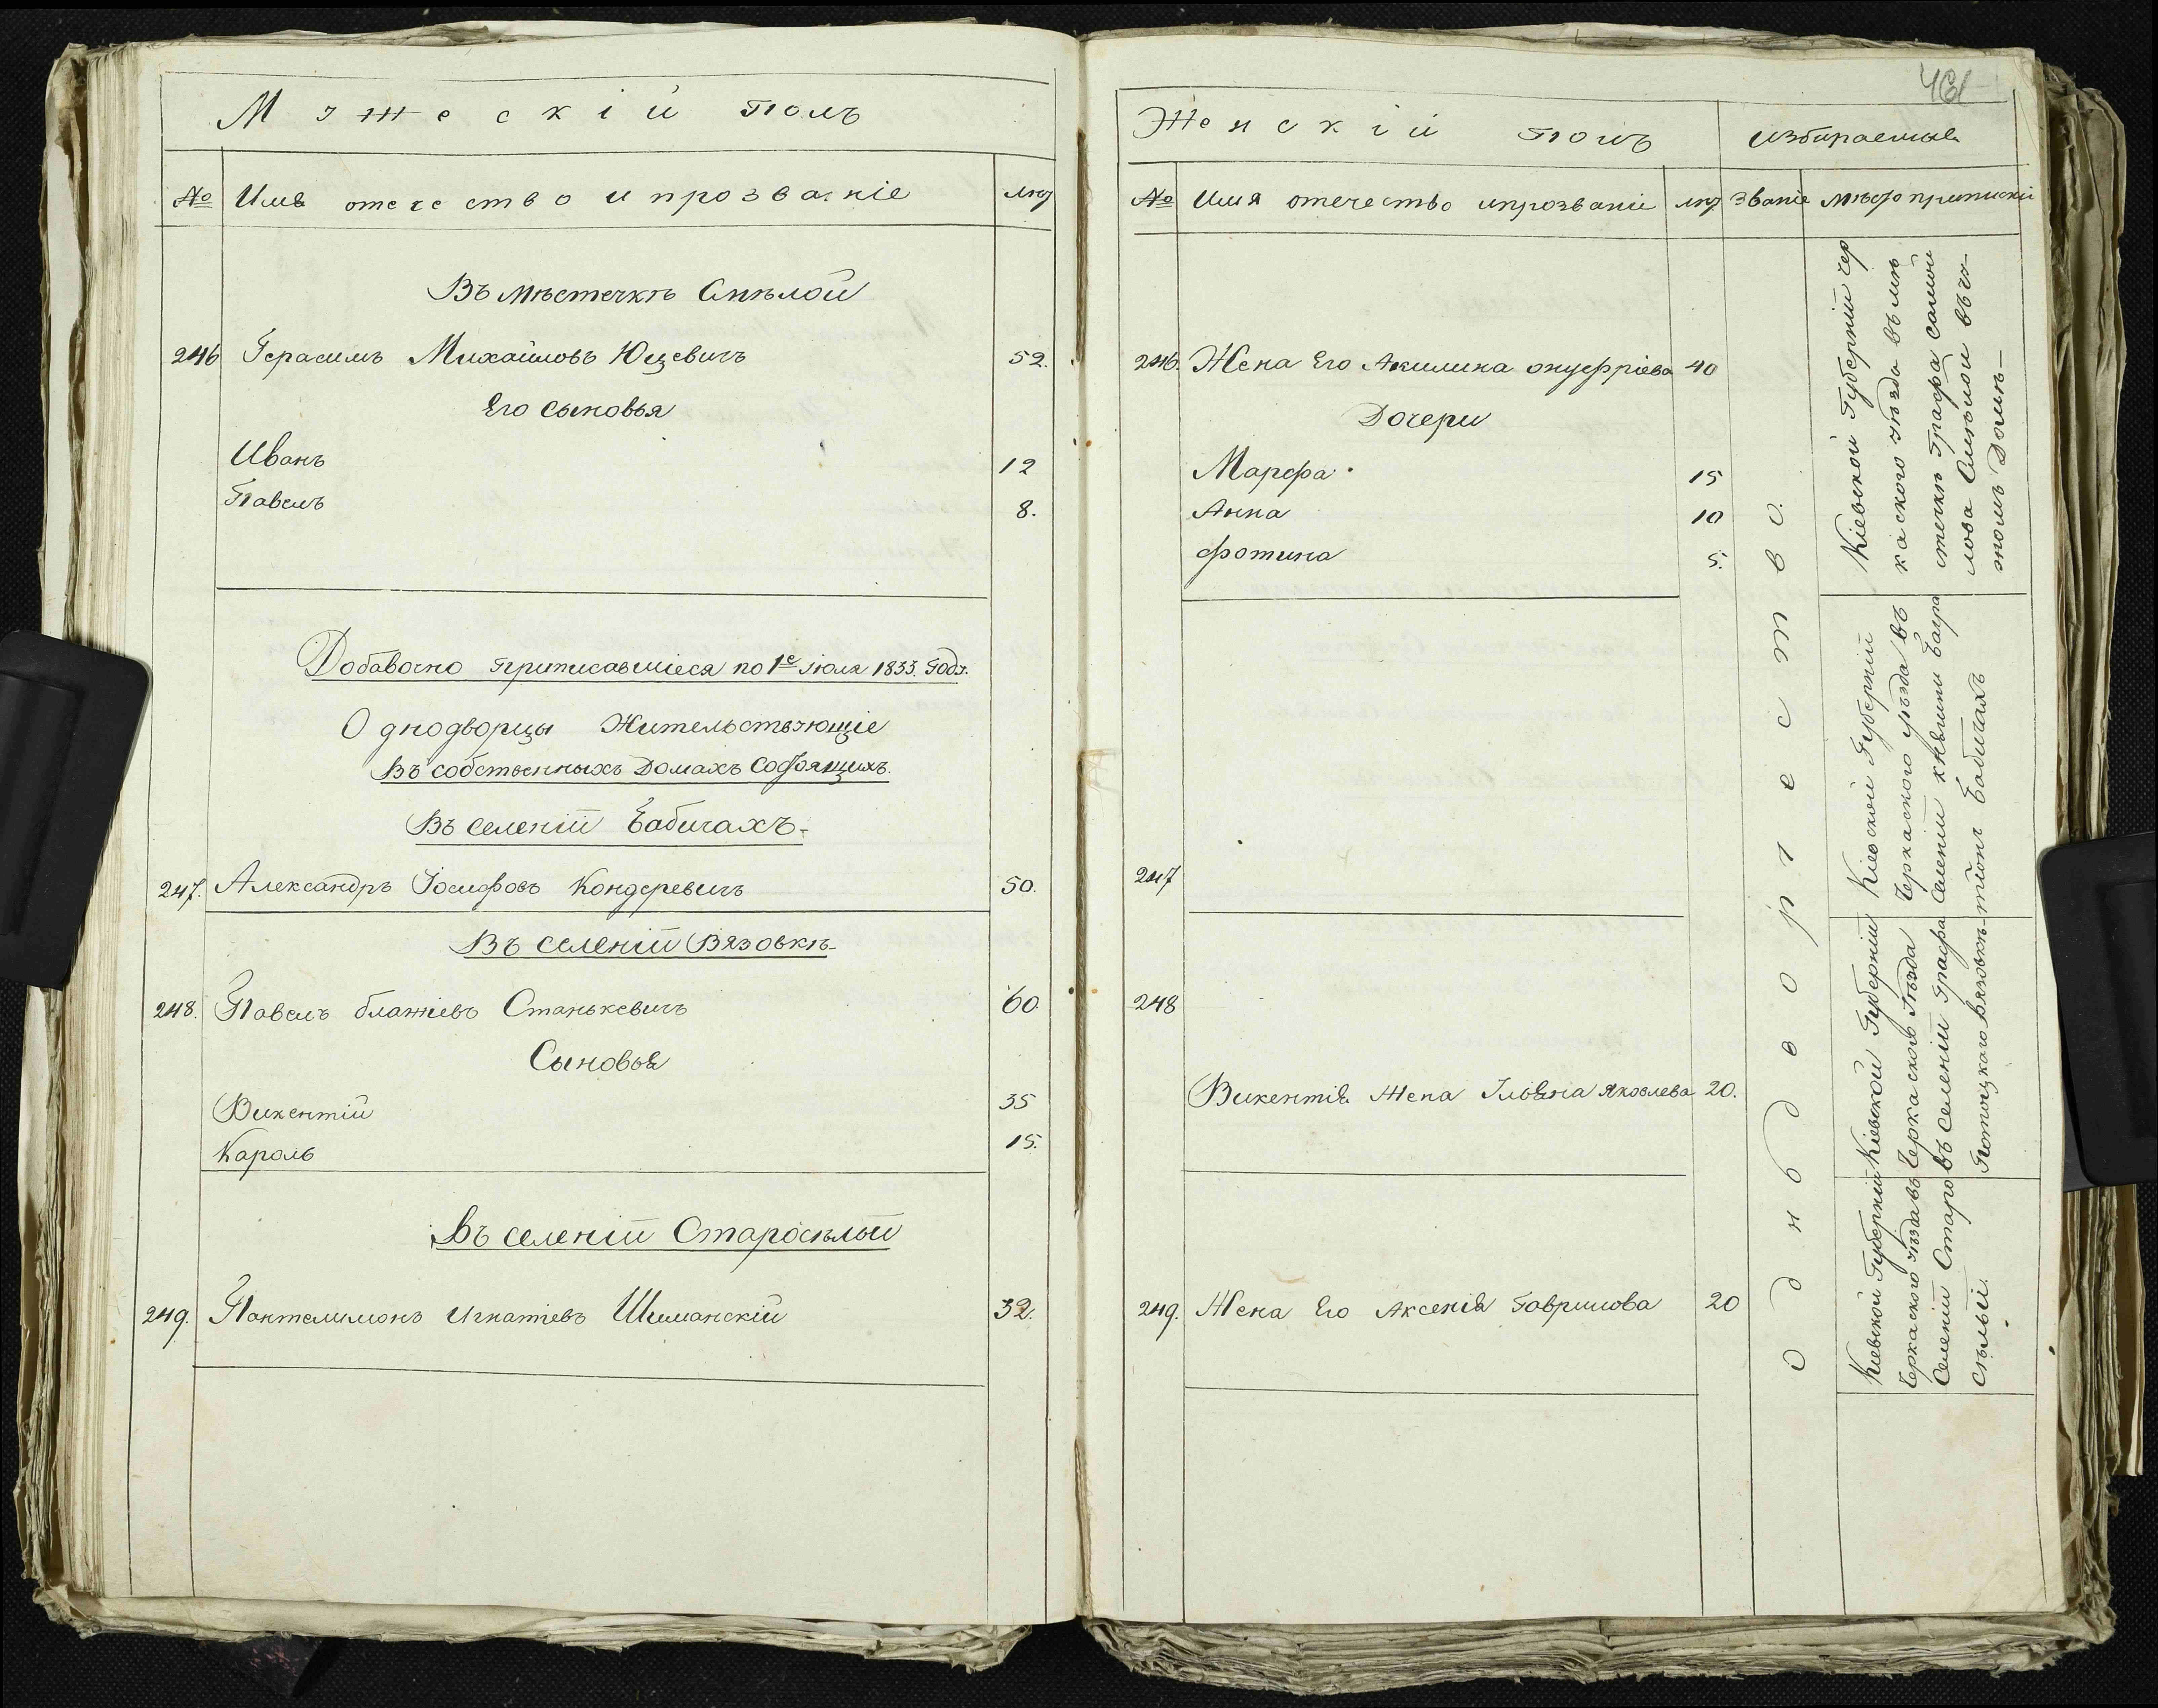 Мужескій полъ
№ Имя отечество и прозваніе лѣт
Въ мѣстечкѣ Смѣлой
246 Герасимъ Михайловъ Юцевичъ 52.
Его сыновья
Иванъ 12
Павелъ 8.
Добавочно приписавшіеся по 1е Іюля 1833. Года.
Однодворцы Жительствующіе
Въ собственныхъ Домахъ
Въ селеніи Бабичахъ.
247. Александръ Іосифовъ Кондеревичъ 50.
Въ селеніи Вязовкѣ
248. Павелъ блажіевъ Станькевичъ 60.
Сыновья
Викентій 35
Кароль 15.
Въ селеніи Старосѣльи
249. Пантелимонъ Игнатіевъ Шиманскій 32.
431
Женскій полъ Избираемыя
№ Имя отечество и прозваніе лѣт Званіе Мѣсто приписки
246. Жена Его Акилина онуфріева 40
Дочери
Марфа 15
Анна 10
фотина 5.
247
248
Викентія Жена Яковлева 20.
249. Жена Его Аксенія Гаврилова 20
Однодворчество.
Кіевской Губерніи Чер
каского уѣзда въ мѣ
стечкѣ Графа Самой
лова Смѣлой въ чу
жомъ Домѣ
Кіевской Губерніи
Черкаского уѣзда въ
Селеніи княгини Багра
тіонъ Бабичахъ
Кіевской Губерніи
Черкаского Уѣзда
въ Селеніи Графа
Потоцкаго Вязовкѣ
Кіевской Губерніи
Черкаского уѣзда въ
Селеніи Старо
сѣльи.